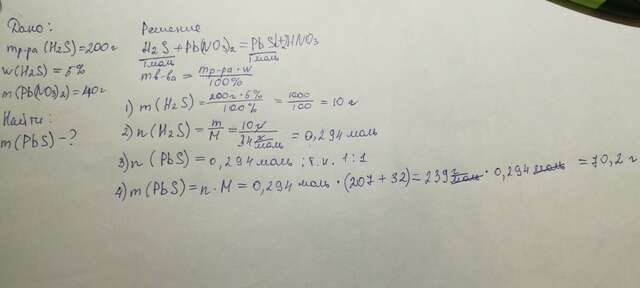 Дано:
m р-ра (H2S)=200 г
w(H2S)=5%
m(Pb(NO3)2)=40г
Найти:
m(PbS)-?
Решение
H2S+Pb(NO3)2=PbS+2HNO3
1моль 1моль
m в-ва = mр-ра·w / 100%
1) m(H2S)= 200г·5% / 100% = 1000 / 100 = 10 г
2) n(H2S)= m / M = 10г / 34 г/моль = 0,294 моль
3) n (PbS)=0,294 моль; т.к. 1:1
4) m(PbS)=n·M=0,294 моль·(207+32)=239 г/моль·0,294 моль = 70,2 г